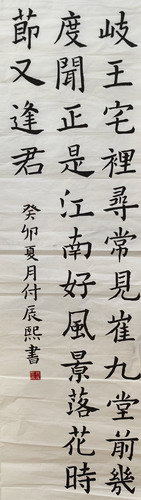 岐王宅裡尋常見崔九堂前幾
度聞正是江南好風景落花時
節又逢君
癸卯夏月付辰熙書